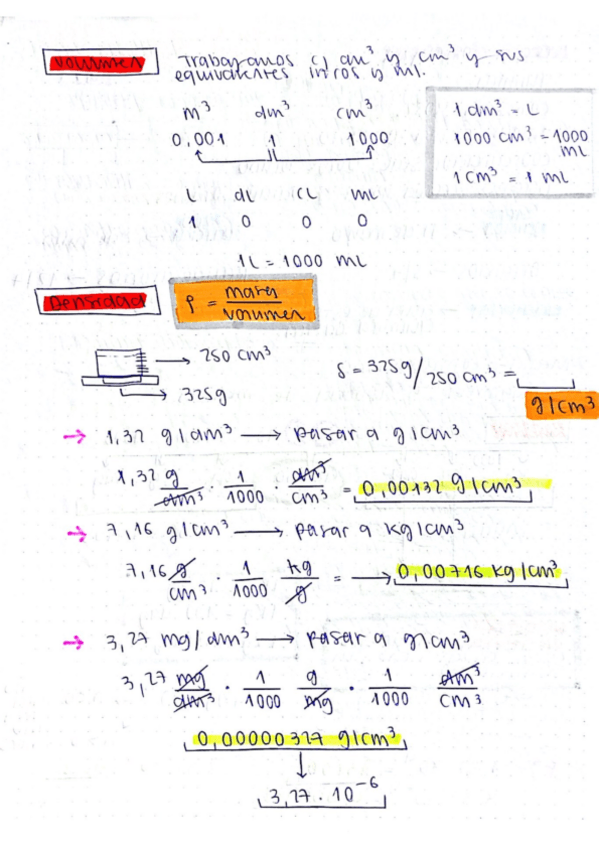 Volumen
Trabajamos c/ dm³ y cm³ y sus
equivalentes litros y ml.
m³ dm³ cm³
0,001 1 1000
1 dm³ = L
1000 cm³ = 1000
ml
1 cm³ = 1 ml
L dL cL mL
1 0 0 0
1L = 1000 ml
Densidad
ρ = masa / volumen
250 cm³
325g
δ = 325g / 250 cm³ =
g/cm³
→ 1,32 g/dm³ → pasar a g/cm³
1,32 g/dm³ · 1/1000 · dm³/cm³ = 0,00132 g/cm³
→ 7,16 g/cm³ → pasar a kg/cm³
7,16 g/cm³ · 1/1000 kg/g = → 0,00716 kg/cm³
→ 3,27 mg/dm³ → pasar a g/cm³
3,27 mg/dm³ · 1/1000 g/mg · 1/1000 dm³/cm³
0,00000327 g/cm³
3,27 · 10⁻⁶